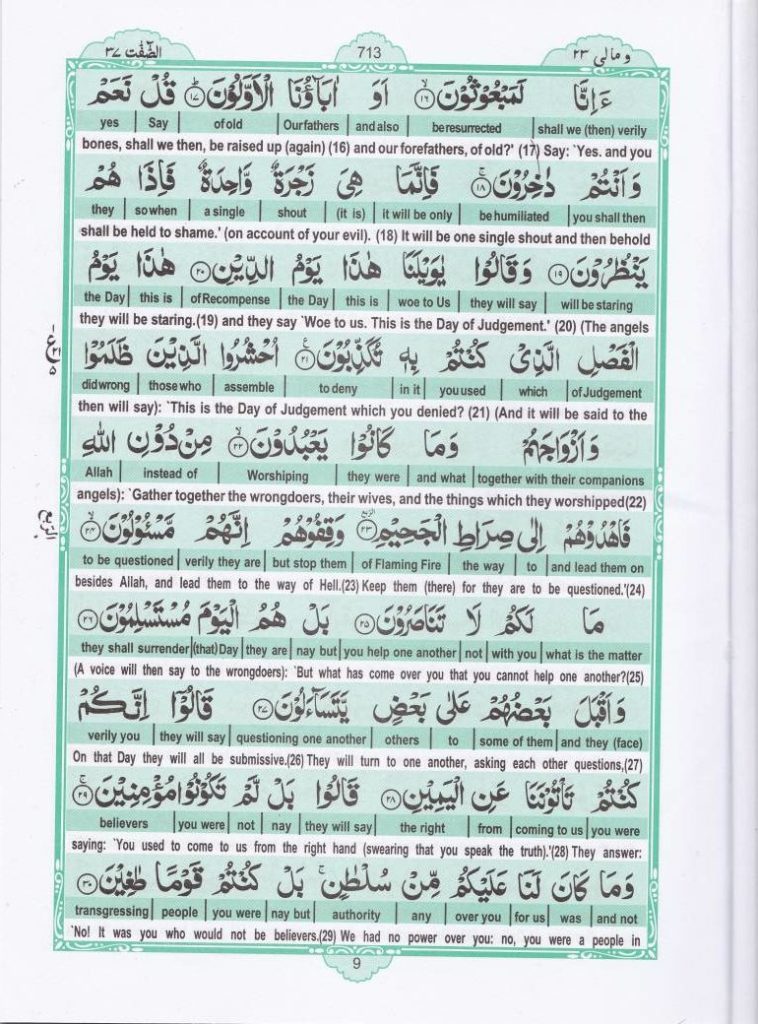 الصّٰٓفّٰت ٣٧ 713 و مالی ٢٣
ءَاِنَّا لَمَبْعُوْثُوْنَ ۙ‏﴿١٦﴾ اَوَ اٰبَآؤُنَا الْاَوَّلُوْنَ ؕ‏﴿١٧﴾ قُلْ نَعَمْ
yes | Say | of old | Our fathers | and also | be resurrected | shall we (then) verily
bones, shall we then, be raised up (again) (16) and our forefathers, of old?' (17) Say: `Yes. and you
وَ اَنْتُمْ دٰخِرُوْنَ ۚ‏﴿١٨﴾ فَاِنَّمَا هِيَ زَجْرَةٌ وَّاحِدَةٌ فَاِذَا هُمْ
they | so when | a single | shout | (it is) | it will be only | be humiliated | you shall then
shall be held to shame.' (on account of your evil). (18) It will be one single shout and then behold
يَنْظُرُوْنَ ﴿١٩﴾ وَ قَالُوْا يٰوَيْلَنَا هٰذَا يَوْمُ الدِّيْنِ ﴿٢٠﴾ هٰذَا يَوْمُ
the Day | this is | of Recompense | the Day | this is | woe to Us | they will say | will be staring
they will be staring.(19) and they say `Woe to us. This is the Day of Judgement.' (20) (The angels
الْفَصْلِ الَّذِيْ كُنْتُمْ بِهٖ تُكَذِّبُوْنَ ﴿٢١﴾ اُحْشُرُوا الَّذِيْنَ ظَلَمُوْا
did wrong | those who | assemble | to deny | in it | you used | which | of Judgement
then will say): `This is the Day of Judgement which you denied? (21) (And it will be said to the
وَ اَزْوَاجَهُمْ وَمَا كَانُوْا يَعْبُدُوْنَ ۙ‏﴿٢٢﴾ مِنْ دُوْنِ اللّٰهِ
Allah | instead of | Worshiping | they were | and what | together with their companions
angels): `Gather together the wrongdoers, their wives, and the things which they worshipped(22)
فَاهْدُوْهُمْ اِلٰى صِرَاطِ الْجَحِيْمِ ﴿٢٣﴾ وَقِفُوْهُمْ اِنَّهُمْ مَّسْـُٔوْلُوْنَ ۙ‏﴿٢٤﴾
to be questioned | verily they are | but stop them | of Flaming Fire | the way | to | and lead them on
besides Allah, and lead them to the way of Hell.(23) Keep them (there) for they are to be questioned.'(24)
مَا لَكُمْ لَا تَنَاصَرُوْنَ ﴿٢٥﴾ بَلْ هُمُ الْيَوْمَ مُسْتَسْلِمُوْنَ ﴿٢٦﴾
they shall surrender | (that) Day | they are | nay but | you help one another | not | with you | what is the matter
(A voice will then say to the wrongdoers): `But what has come over you that you cannot help one another?(25)
وَ اَقْبَلَ بَعْضُهُمْ عَلٰى بَعْضٍ يَّتَسَآءَلُوْنَ ﴿٢٧﴾ قَالُوْٓا اِنَّكُمْ
verily you | they will say | questioning one another | others | to | some of them | and they (face)
On that Day they will all be submissive.(26) They will turn to one another, asking each other questions,(27)
كُنْتُمْ تَاْتُوْنَنَا عَنِ الْيَمِيْنِ ﴿٢٨﴾ قَالُوْا بَلْ لَّمْ تَكُوْنُوْا مُؤْمِنِيْنَ ۚ‏﴿٢٩﴾
believers | you were | not | nay | they will say | the right | from | coming to us | you were
saying: `You used to come to us from the right hand (swearing that you speak the truth).'(28) They answer:
وَمَا كَانَ لَنَا عَلَيْكُمْ مِّنْ سُلْطٰنٍ ۚ بَلْ كُنْتُمْ قَوْمًا طٰغِيْنَ ﴿٣٠﴾
transgressing | people | you were | nay but | authority | any | over you | for us | was | and not
`No! It was you who would not be believers.(29) We had no power over you: no, you were a people in
9
الربع